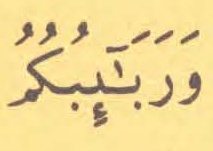 وَرَبَـٰٓئِبُكُمُ